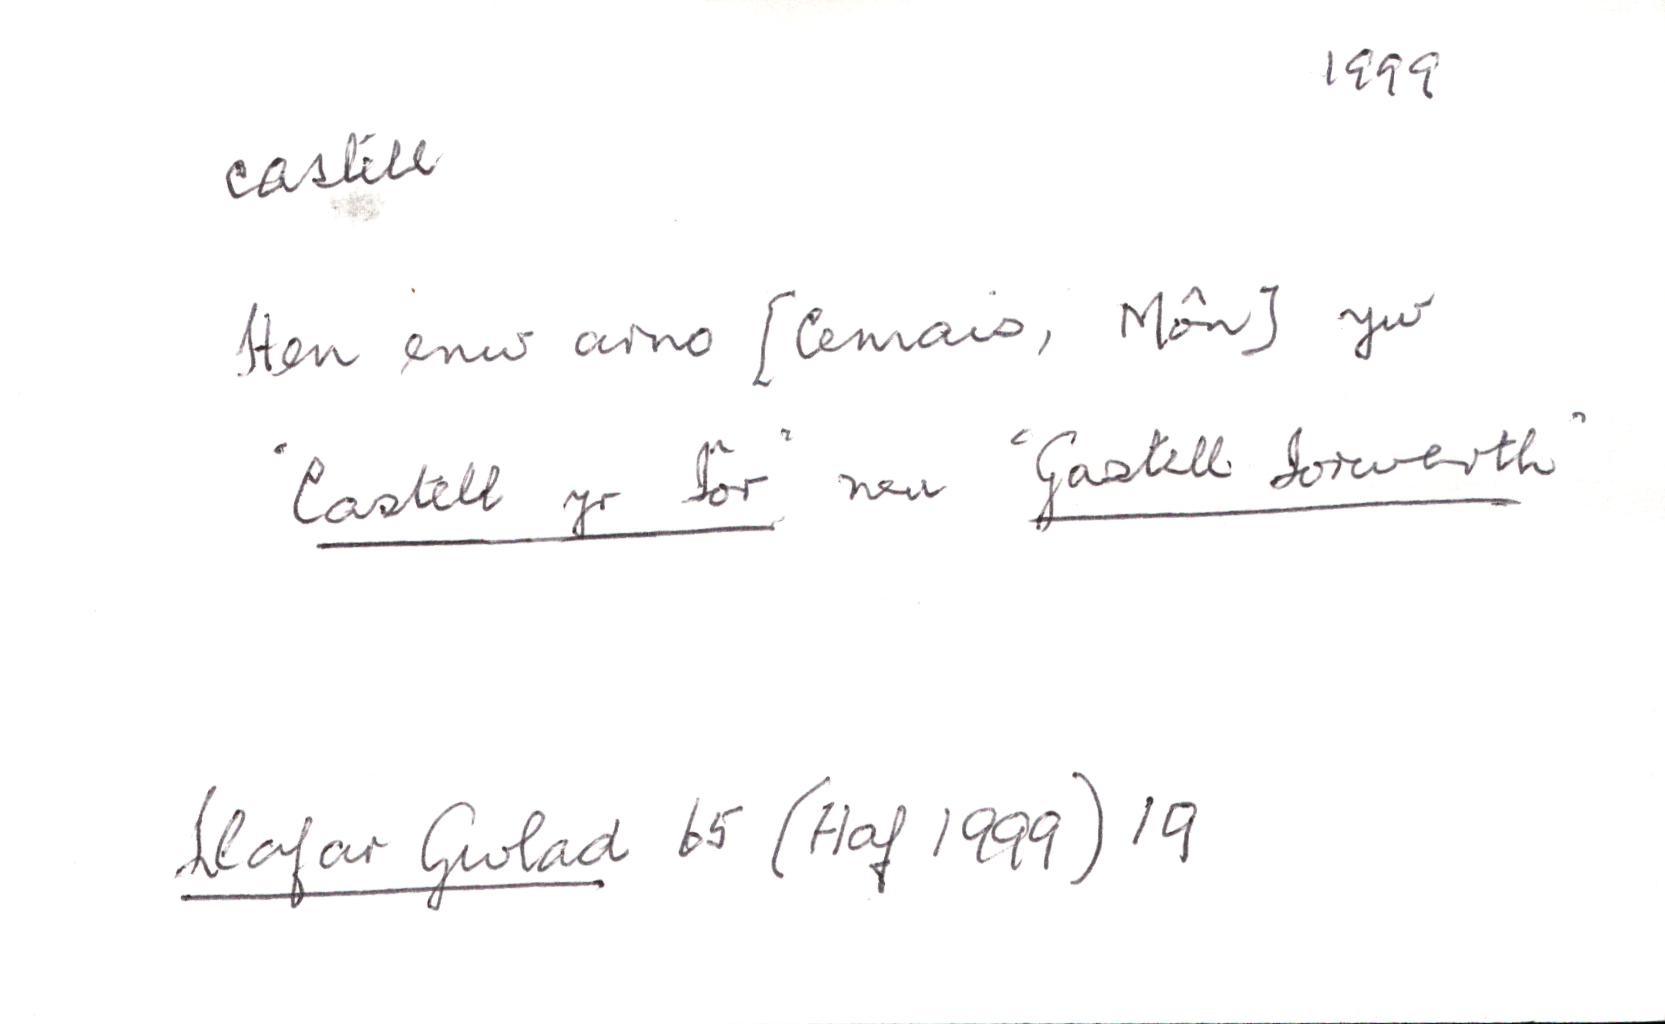 1999
castell
Hen enw arno [Cemais, Môn] yw
"Castell yr Iôr" neu "Gastell Iorwerth"
Llafar Gwlad 65 (Haf 1999) 19